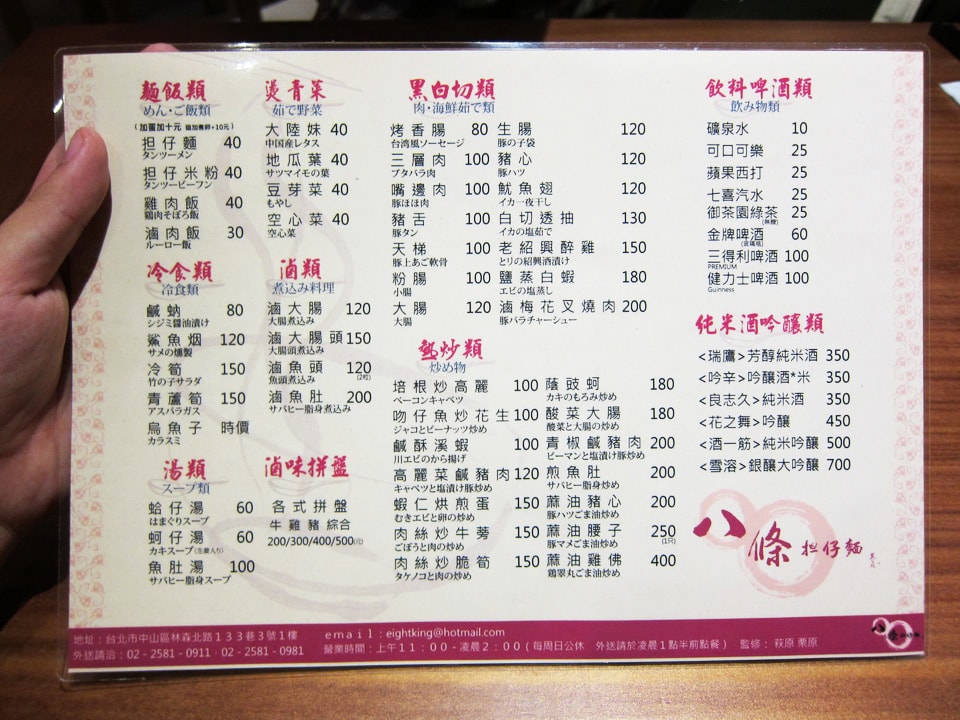 麵飯類
めん・ご飯類
(加蛋加十元 貓加煮卵+10元)
担仔麵 40
タンツーメン
担仔米粉 40
タンツービーフン
雞肉飯 40
鶏肉そぼろ飯
滷肉飯 30
ルーロー飯
冷食類
冷食類
鹹蚋 80
シジミ醤油漬け
鯊魚烟 120
サメの燻製
冷筍 150
竹の子サラダ
青蘆筍 150
アスパラガス
烏魚子 時價
カラスミ
湯類
スープ類
蛤仔湯 60
はまぐりスープ
蚵仔湯 60
カキスープ(生姜入り)
魚肚湯 100
サバヒー脂身スープ
燙青菜
茹で野菜
大陸妹 40
中国産レタス
地瓜葉 40
サツマイモの葉
豆芽菜 40
もやし
空心菜 40
空心菜
滷類
煮込み料理
滷大腸 120
大腸煮込み
滷大腸頭 150
大腸頭煮込み
滷魚頭 120
魚頭煮込み (2粒)
滷魚肚 200
サバヒー脂身煮込み
滷味拼盤
各式拼盤
牛雞豬 綜合
200/300/400/500元
黑白切類
肉・海鮮茹で類
烤香腸 80
台湾風ソーセージ
三層肉 100
ブタバラ肉
嘴邊肉 100
豚ほほ肉
豬舌 100
豚タン
天梯 100
豚上あご軟骨
粉腸 100
小腸
大腸 120
大腸
生腸 120
豚の子袋
豬心 120
豚ハツ
魷魚翅 120
イカ一夜干し
白切透抽 130
イカの塩茹で
老紹興醉雞 150
とりの紹興酒漬け
鹽蒸白蝦 180
エビの塩蒸し
滷梅花叉燒肉 200
豚バラチャーシュー
熱炒類
炒め物
培根炒高麗 100
ベーコンキャベツ
吻仔魚炒花生 100
ジャコとピーナッツ炒め
鹹酥溪蝦 100
川エビのから揚げ
高麗菜鹹豬肉 120
キャベツと塩漬け豚炒め
蝦仁烘煎蛋 150
むきエビと卵の炒め
肉絲炒牛蒡 150
ごぼうと肉の炒め
肉絲炒脆筍 150
タケノコと肉の炒め
蔭豉蚵 180
カキのもろみ炒め
酸菜大腸 180
酸菜と大腸の炒め
青椒鹹豬肉 200
ピーマンと塩漬け豚炒め
煎魚肚 200
サバヒー脂身炒め
蔴油豬心 200
豚ハツごま油炒め
蔴油腰子 250
豚マメごま油炒め (1只)
蔴油雞佛 400
鶏睾丸ごま油炒め
飲料啤酒類
飲み物類
礦泉水 10
可口可樂 25
蘋果西打 25
七喜汽水 25
御茶園綠茶 25
(無糖)
金牌啤酒 60
(玻璃瓶)
三得利啤酒 100
PREMIUM
健力士啤酒 100
Guinness
純米酒吟釀類
<瑞鷹>芳醇純米酒 350
<吟辛>吟釀酒*米 350
<良志久>純米酒 350
<花之舞>吟釀 450
<酒一筋>純米吟釀 500
<雪溶>銀釀大吟釀 700
八條担仔麵
地址:台北市中山區林森北路133巷3號1樓
email:eightking@hotmail.com
外送請洽:02-2581-0911・02-2581-0981
營業時間:上午11:00-凌晨2:00(每周日公休 外送請於凌晨1點半前點餐) 監修:萩原 栗原